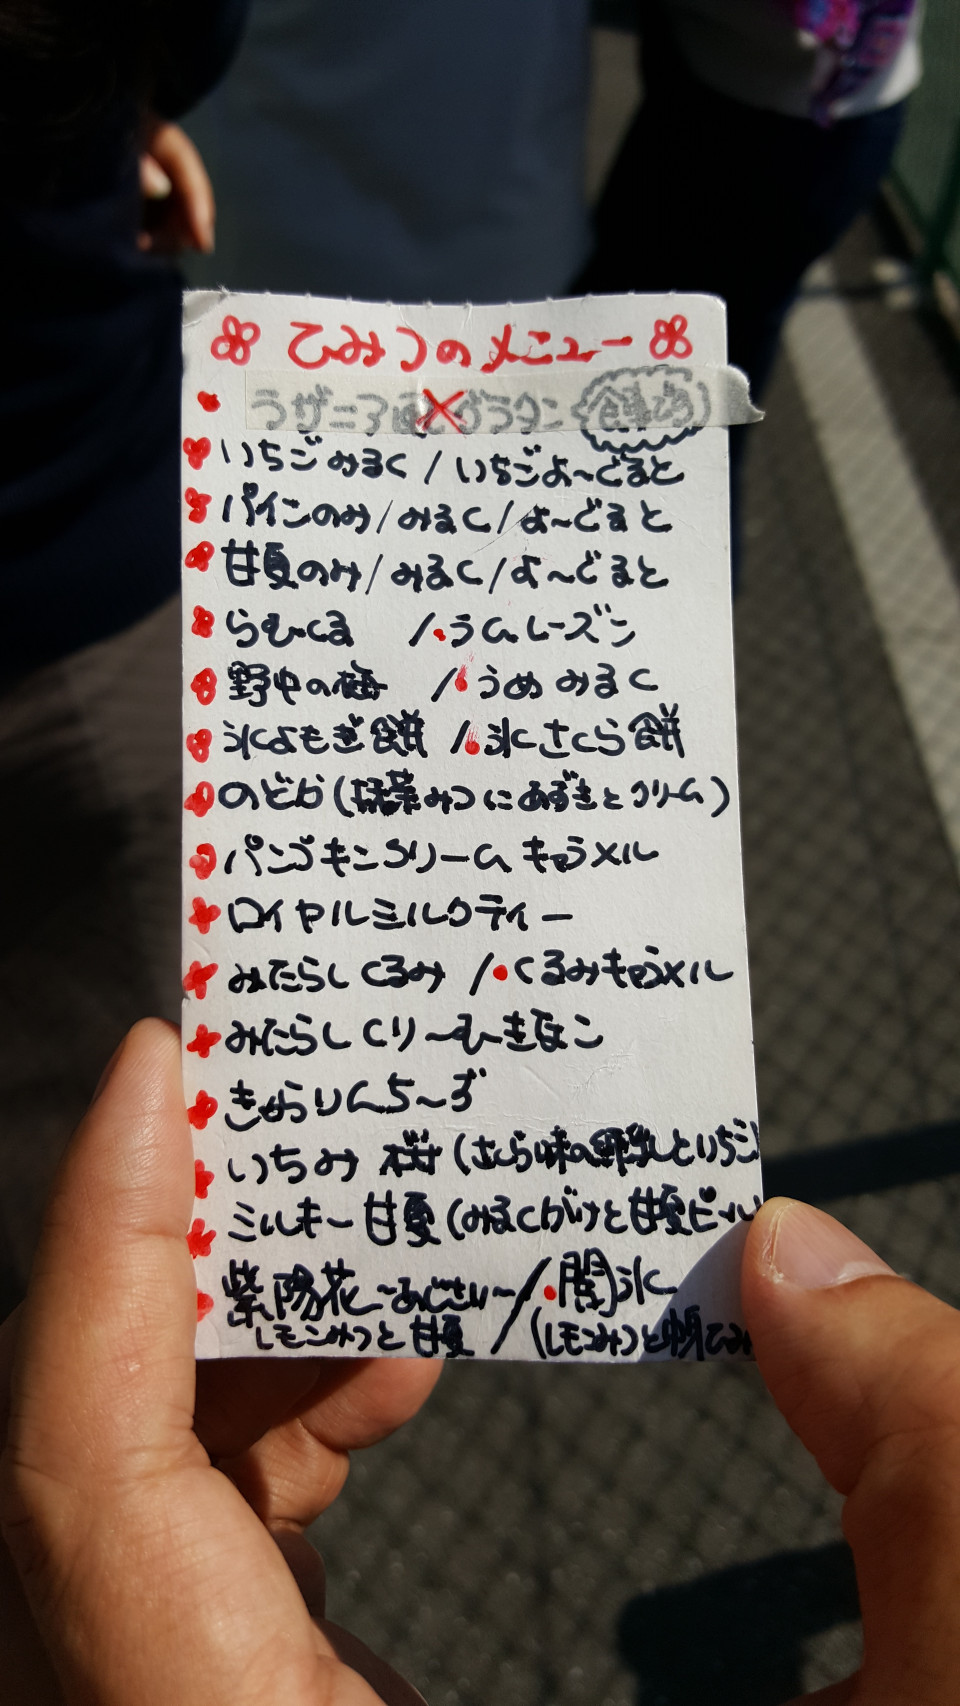 ひみつのメニュー
ラザニア風グラタン
いちごみるく/いちごよ〜ぐると
パインのみ/みるく/よ〜ぐると
甘夏のみ/みるく/よ〜ぐると
らむくる /・ラムレーズン
野中の梅 /・うめみるく
氷よもぎ餅 /・氷さくら餅
のどか(抹茶みつにあずきとクリーム)
パンプキンクリームキャラメル
ロイヤルミルクティー
みたらしくるみ /・くるみキャラメル
みたらしくり〜む
きゃらりんち〜ず
いちみ桜(さくら味の練乳といちご
ミルキー甘夏(みるくがけと甘夏ピール
紫陽花〜あじさい〜/・闇氷
レモンみつと甘夏/(レモンみつと